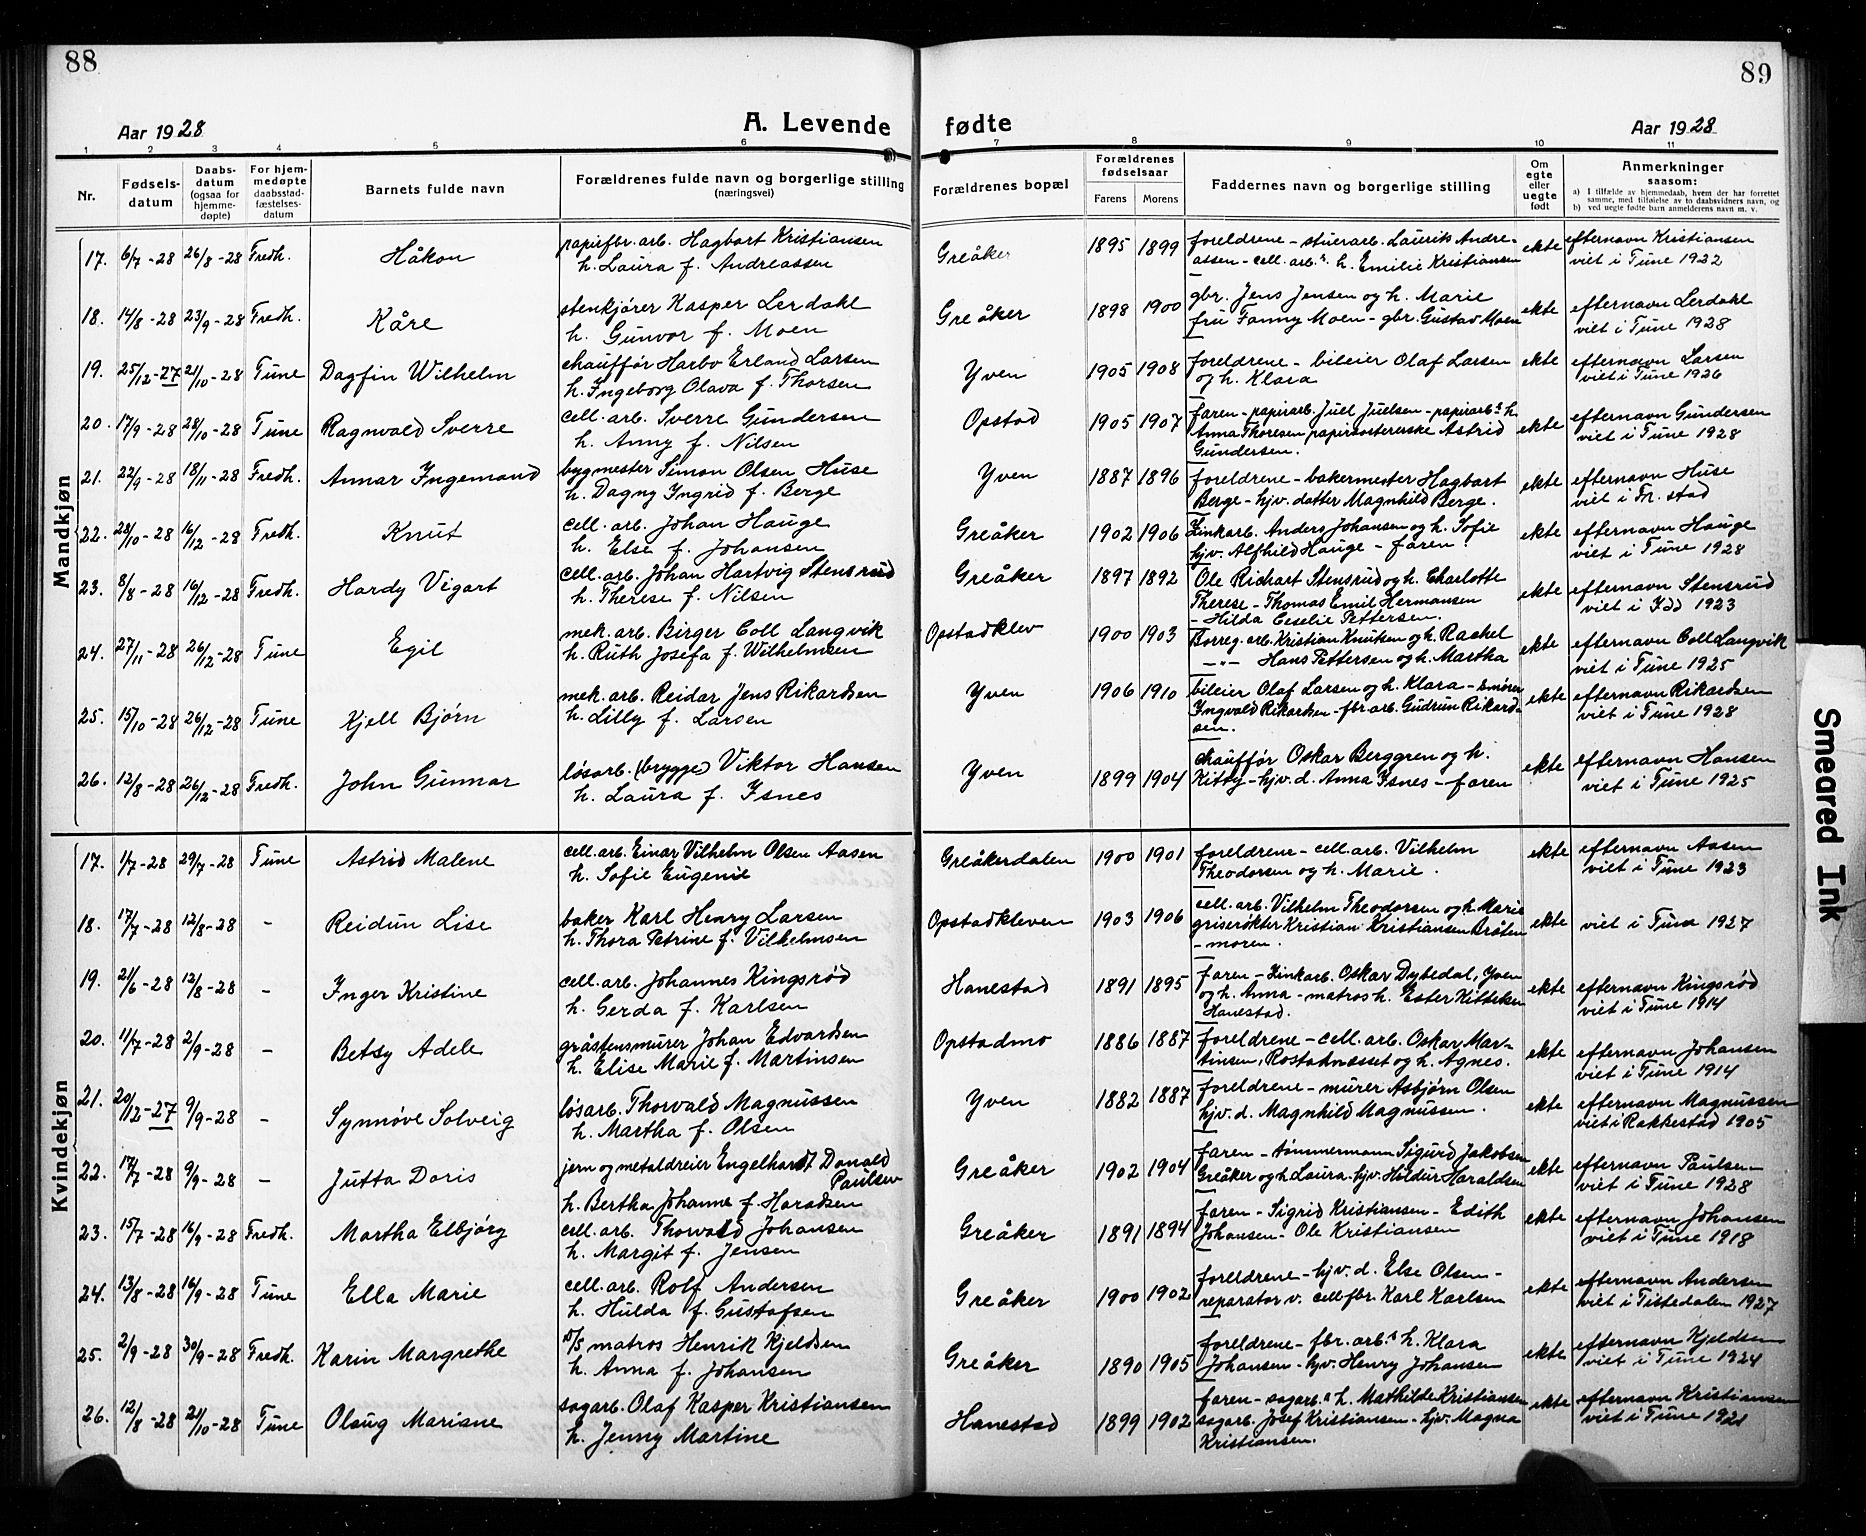 88
89
Aar 1928
A. Levende
fødte
Aar 1928
1 2 3 4 5 6 7 8 9 10 11
Nr.
Fødsels-
datum
Daabs-
datum
(ogsaa for
hjemme-
døpte)
For hjem-
medøpte
daabsstad-
fæstelses-
datum
Barnets fulde navn
Forældrenes fulde navn og borgerlige stilling
(næringsvei)
Forældrenes bopæl
Forældrenes
fødselsaar
Farens Morens
Faddernes navn og borgerlige stilling
Om
egte
eller
uegte
født
Anmerkninger
saasom:
a) I tilfælde av hjemmedaab, hvem der har forrettet
samme, med tilføielse av to daabsvidners navn, og
b) ved uegte fødte barn anmelderens navn m. v.
Mandkjøn
17. 6/7-28 26/8-28 Fredh. Håkon papirfbr. arb. Hagbart Kristiansen Greåker 1895 1899 foreldrene - stuerarb. Laurits Andre- ekte efternavn Kristiansen
h. Laura f. Andreassen assen - cell. arb.s h. Emilie Kristiansen viet i Tune 1922
18. 14/8-28 23/9-28 Fredh. Kåre stenkjører Kasper Lerdahl Greåker 1898 1900 gbr. Jens Jensen og h. Marie ekte efternavn Lerdahl
h. Gunvor f. Moen fru Fanny Moen - gbr. Gustav Moen viet i Tune 1928
19. 25/12-27 21/10-28 Tune Dagfin Wilhelm chauffør Harbo Erland Larsen Yven 1905 1908 foreldrene - bileier Olaf Larsen ekte efternavn Larsen
h. Ingeborg Olava f. Thorsen og h. Klara viet i Tune 1926
20. 17/9-28 28/10-28 Tune Ragnvald Sverre cell. arb. Sverre Gundersen Opstad 1905 1907 faren - papirarb. Juel Juelsen - papirarb.s h. ekte efternavn Gundersen
h. Anny f. Nilsen Anna Thoresen papirsorterерske Astrid viet i Tune 1928
Gundersen.
21. 22/9-28 18/11-28 Fredh. Annar Ingemand bygmester Simon Olsen Huse Yven 1887 1896 foreldrene - bakermester Hagbart ekte efternavn Huse
h. Dagny Ingrid f. Berge Berge - hjv. datter Magnhild Berge. viet i Fr. stad
22. 28/10-28 16/12-28 Fredh. Knut cell. arb. Johan Hauge Greåker 1902 1906 Zinkarb. Anders Johansen og h. Sofie ekte efternavn Hauge
h. Else f. Johansen hjv. Alfhild Hauge - faren. viet i Tune 1928
23. 8/8-28 16/12-28 Fredh. Hardy Vigart cell. arb. Johan Hartvig Stensrud Greåker 1897 1892 Ole Richart Stensrud og h. Charlotte ekte efternavn Stensrud
h. Therese f. Nilsen Therese - Thomas Emil Hermansen viet i Idd 1923
- Hilda Ceselie Pettersen.
24. 27/11-28 26/12-28 Tune Egil mek. arb. Birger Coll Langvik Opstadklev 1900 1903 Borreg. arb. Kristian Knutsen og h. Rachel ekte efternavn Coll Langvik
h. Ruth Josefa f. Wilhelmsen -"- Hans Pettersen og h. Martha viet i Tune 1925
25. 15/10-28 26/12-28 Tune Kjell Bjørn mek. arb. Reidar Jens Rikardsen Yven 1906 1910 bileier Olaf Larsen og h. Klara - smører ekte efternavn Rikardsen
h. Lilly f. Larsen Ingvald Rikardsen - fbr. arb. Gudrun Rikard- viet i Tune 1928
sen.
26. 12/8-28 26/12-28 Fredh. John Gunnar løsarb. (brygge) Viktor Hansen Yven 1899 1904 chauffør Oskar Berggren og h. ekte efternavn Hansen
h. Laura f. Isnes Kitty - hjv. d. Anna Isnes - faren viet i Tune 1925
Kvindekjøn
17. 1/7-28 29/7-28 Tune Astrid Malene cell. arb. Einar Vilhelm Olsen Aasen Greåkerdalen 1900 1901 foreldrene - cell. arb. Vilhelm ekte efternavn Aasen
h. Sofie Eugenie Theodorsen og h. Marie. viet i Tune 1923
18. 17/7-28 12/8-28 - Reidun Lise baker Karl Henry Larsen Opstadkleven 1903 1906 cell. arb. Vilhelm Theodorsen og h. Marie ekte viet i Tune 1927
h. Thora Petrine f. Vilhelmsen griserøkter Kristian Kristiansen Bråten
- moren.
19. 21/6-28 12/8-28 - Inger Kristine cell. arb. Johannes Kingsrød Hanestad 1891 1895 faren - Zinkarb. Oskar Dybedal, Yven ekte efternavn Kingsrød
h. Gerda f. Karlsen og h. Anna - matros h. Ester Kittelsen viet i Tune 1914
Hanestad.
20. 11/7-28 2/9-28 - Betsy Adele gråstensmurer Johan Edvardsen Opstadmo 1886 1887 foreldrene - cell. arb. Oskar Mar- ekte efternavn Johansen
h. Elise Marie f. Martinsen tinsen, Rostadneset og h. Agnes. viet i Tune 1914
21. 20/12-27 9/9-28 - Synnøve Solveig løsarb. Thorvald Magnussen Yven 1882 1887 foreldrene - murer Asbjørn Olsen ekte efternavn Magnussen
h. Martha f. Olsen hjv. d. Magnhild Magnussen. viet i Rakkestad 1905
22. 17/7-28 9/9-28 - Jutta Doris jern og metaldreier Engelhardt Donald Greåker 1902 1904 faren - tømmermann Sigurd Jakobsen ekte efternavn Paulsen
Paulsen Greåker og h. Laura - hjv. Hildur Haraldsen viet i Tune 1928
h. Bertha Johanne f. Haraldsen
23. 15/7-28 16/9-28 Fredh. Martha Elbjørg cell. arb. Thorvald Johansen Greåker 1891 1894 faren - Sigrid Kristiansen - Edith ekte efternavn Johansen
h. Margit f. Jensen Johansen - Ole Kristiansen viet i Tune 1918
24. 13/8-28 16/9-28 Tune Ella Marie cell. arb. Rolf Andersen Greåker 1900 1902 foreldrene - hjv. d. Else Olsen - ekte efternavn Andersen
h. Hulda f. Gustafsen reparatør v. cellfbr. Karl Karlsen viet i Tistedalen 1927
25. 2/9-28 30/9-28 Fredh. Karin Margrethe D/S matros Henrik Kjeldsen Greåker 1890 1905 foreldrene - fbr. arb.s h. Klara ekte efternavn Kjeldsen
h. Anna f. Johansen Johansen - hjv. Henry Johansen viet i Tune 1924
26. 12/8-28 21/10-28 Tune Olaug Mariane sagarb. Olaf Kasper Kristiansen Hanestad 1899 1902 faren - sagarb.s h. Mathilde Kristiansen ekte efternavn Kristiansen
h. Jenny Martine sagarb. Josef Kristiansen - hjv. Magna viet i Tune 1921
Kristiansen.
Smeared Ink